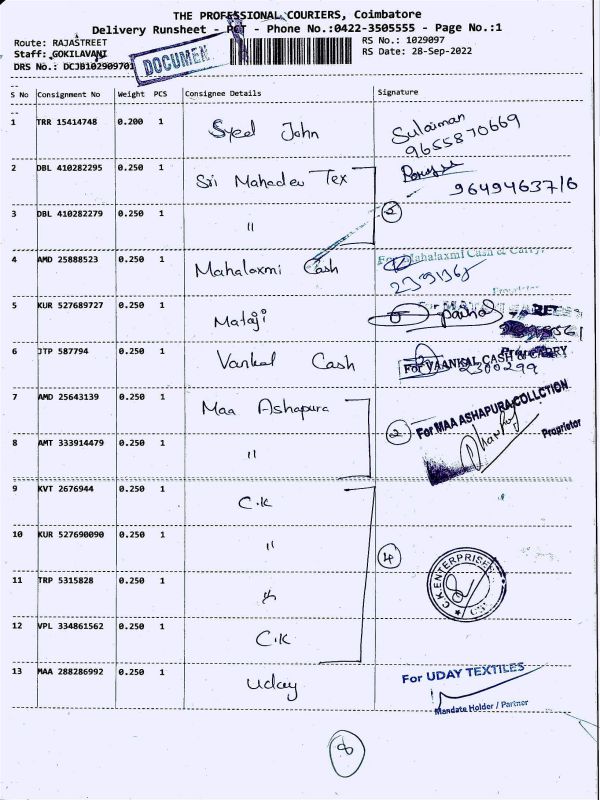 THE PROFESSIONAL COURIERS, Coimbatore
Delivery Runsheet - PCT - Phone No.:0422-3505555 - Page No.:1
Route: RAJASTREET
RS No.: 1029097
Staff: GOKILAVANI
RS Date: 28-Sep-2022
DRS No.: DCJB102909701
DOCUMEN
S No Consignment No Weight PCS Consignee Details Signature
1 TRR 15414748 0.200 1 Syed John Sulaiman
9655870669
2 DBL 410282295 0.250 1 Sri Mahadev Tex
9649463716
3 DBL 410282279 0.250 1 " 2
4 AMD 25888523 0.250 1 Mahalaxmi Cash For Mahalaxmi Cash & Carry.
5 KUR 527689727 0.250 1 Mataji
6 JTP 587794 0.250 1 Vankal Cash For VAANKAL CASH & CARRY
2300299
7 AMD 25643139 0.250 1 Maa Ashapura For MAA ASHAPURA COLLCTION
8 AMT 333914479 0.250 1 " 2 Proprietor
9 KVT 2676944 0.250 1 C.K
10 KUR 527690090 0.250 1 " 4
C.K. ENTERPRISES
11 TRP 5315828 0.250 1 "
12 VPL 334861562 0.250 1 C.K
13 MAA 288286992 0.250 1 Uday For UDAY TEXTILES
Mandate Holder / Partner
8